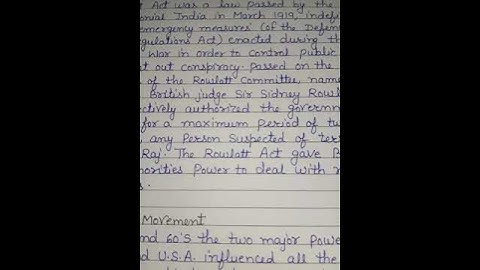 Act was a law passed by the
India in March 1919, indef
emergency measures (of the Defen
Regulations Act) enacted during th
War in order to control public
out conspiracy. passed on the
of the Rowlatt Committee, name
British judge Sir Sidney Rowl
authorized the governm
for a maximum period of tw
any Person Suspected of ter
Raj. The Rowlatt Act gave B
Power to deal with r
Movement
60's the two major Powe
U.S.A. influenced all the